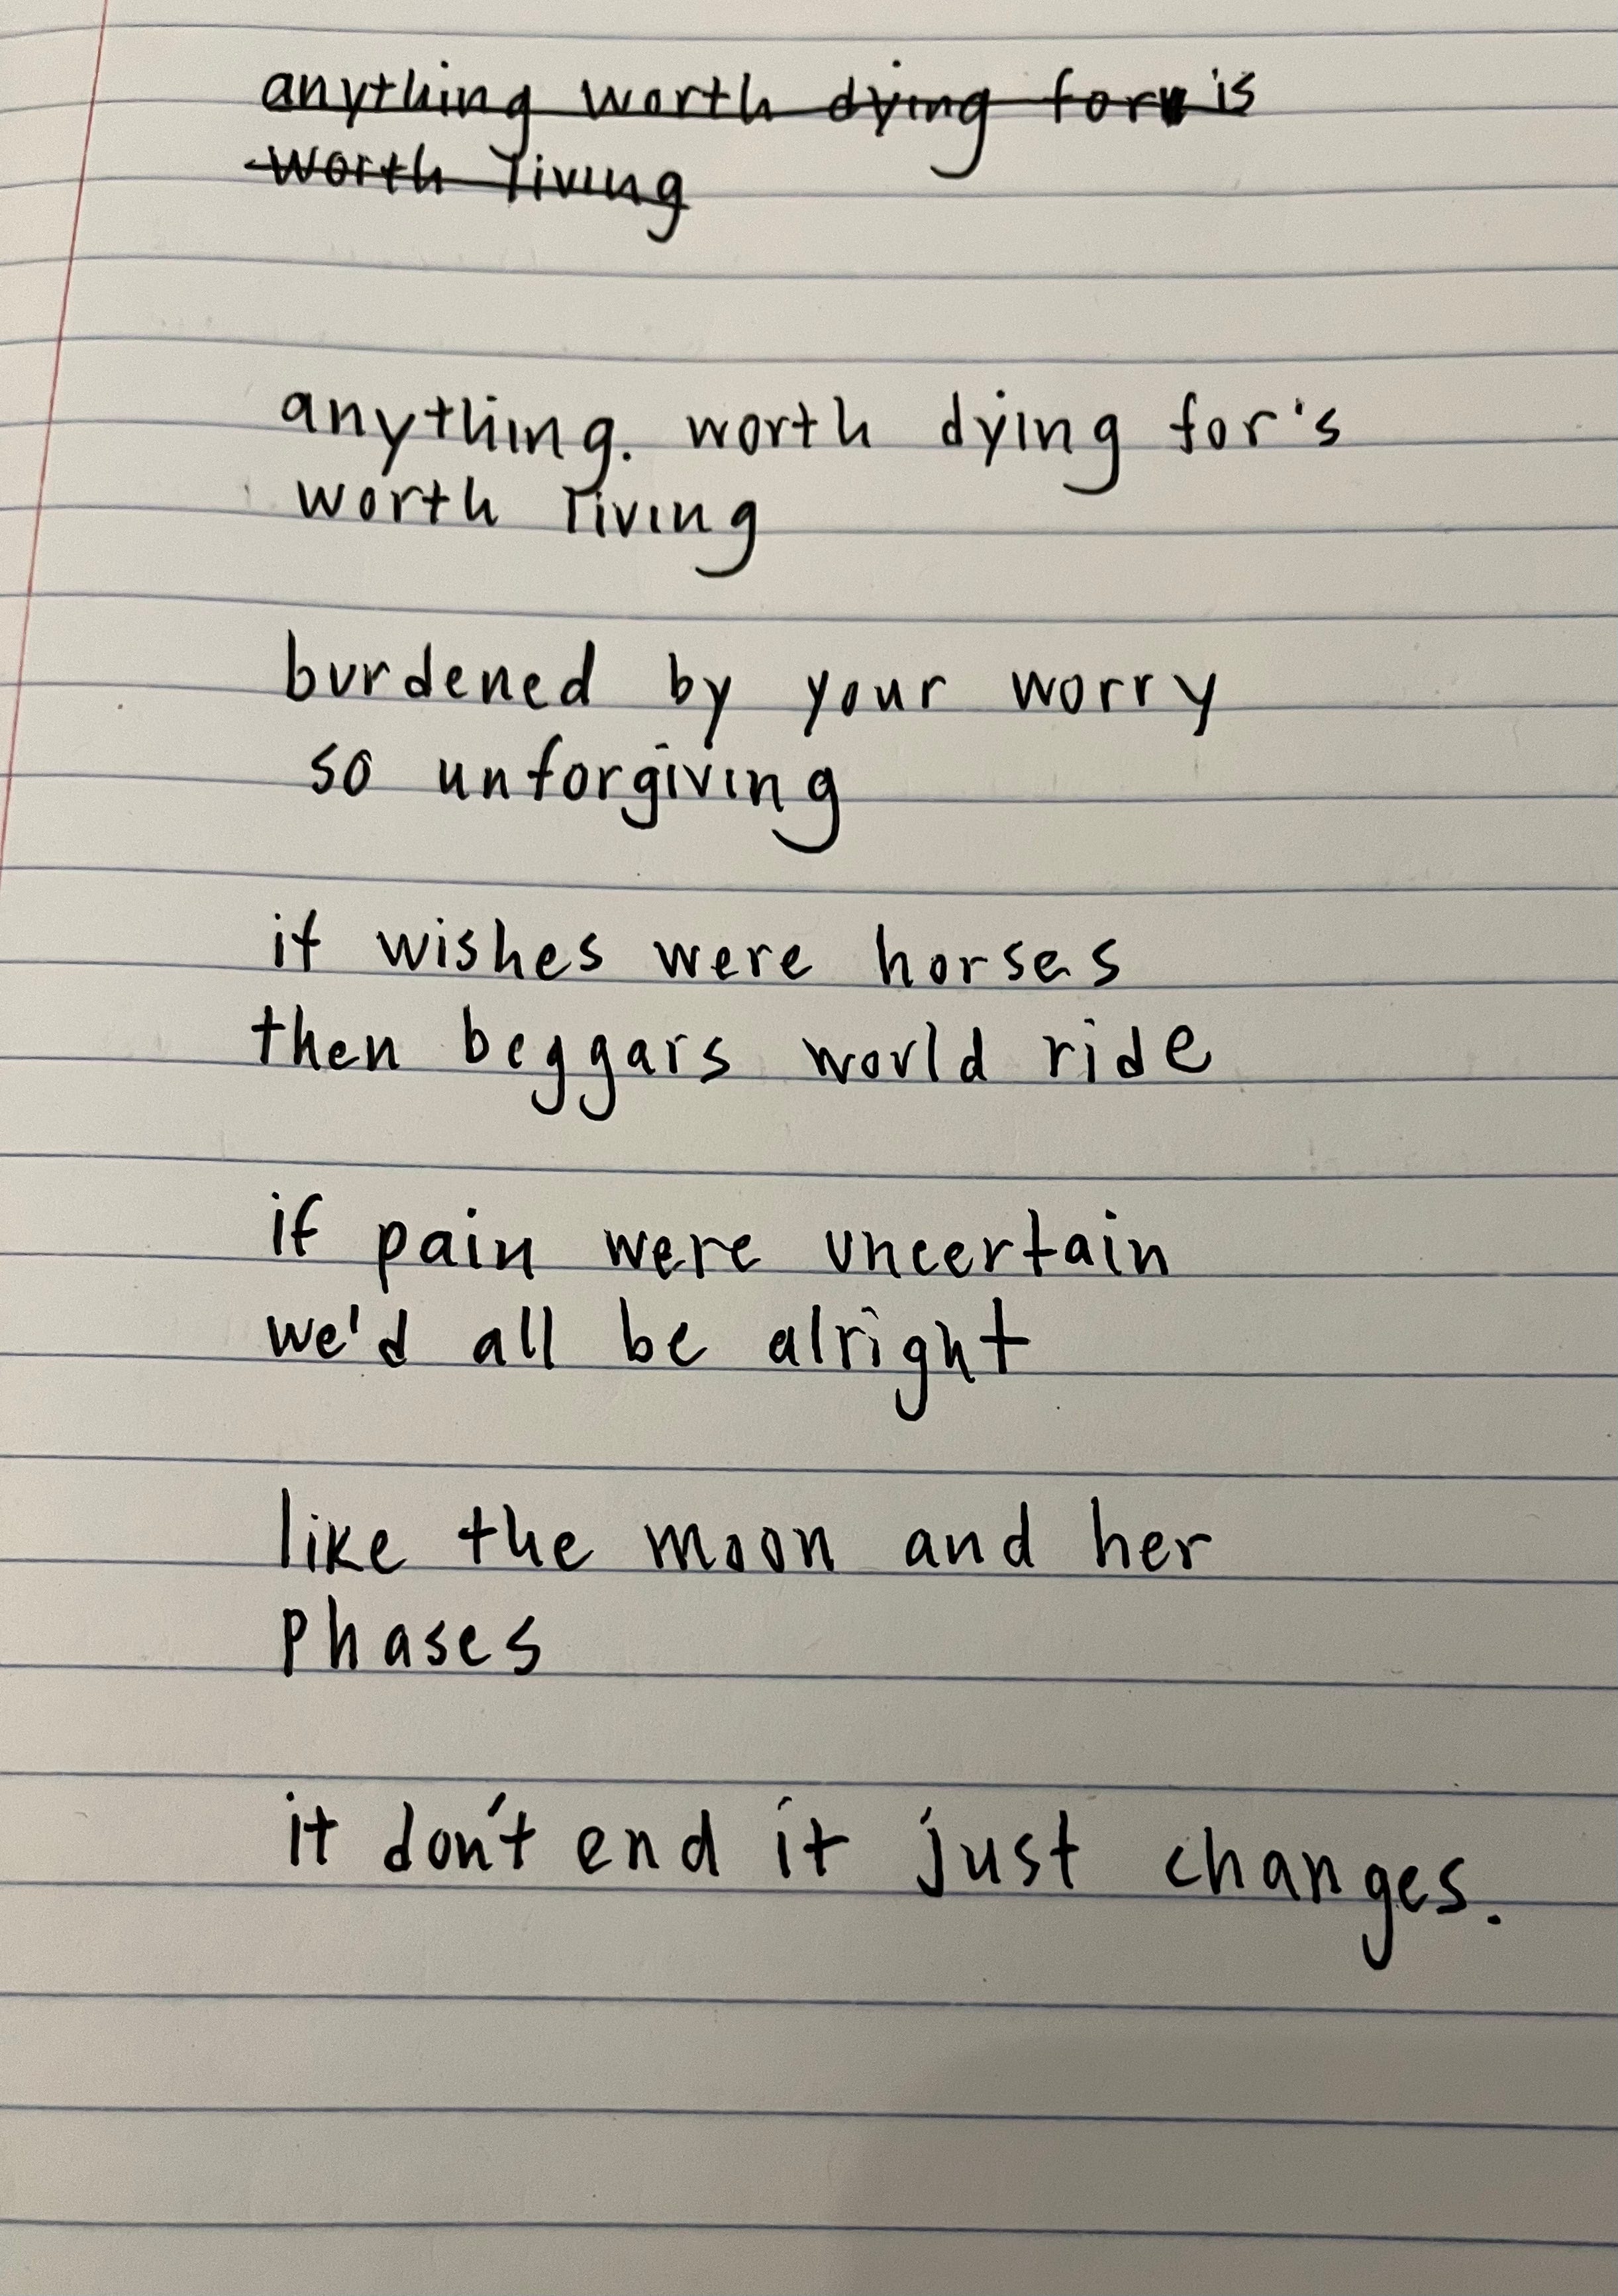 anything worth dying for is
worth living
anything. worth dying for's
worth living
burdened by your worry
so unforgiving
if wishes were horses
then beggars would ride
if pain were uncertain
we'd all be alright
like the moon and her
phases
it don't end it just changes.